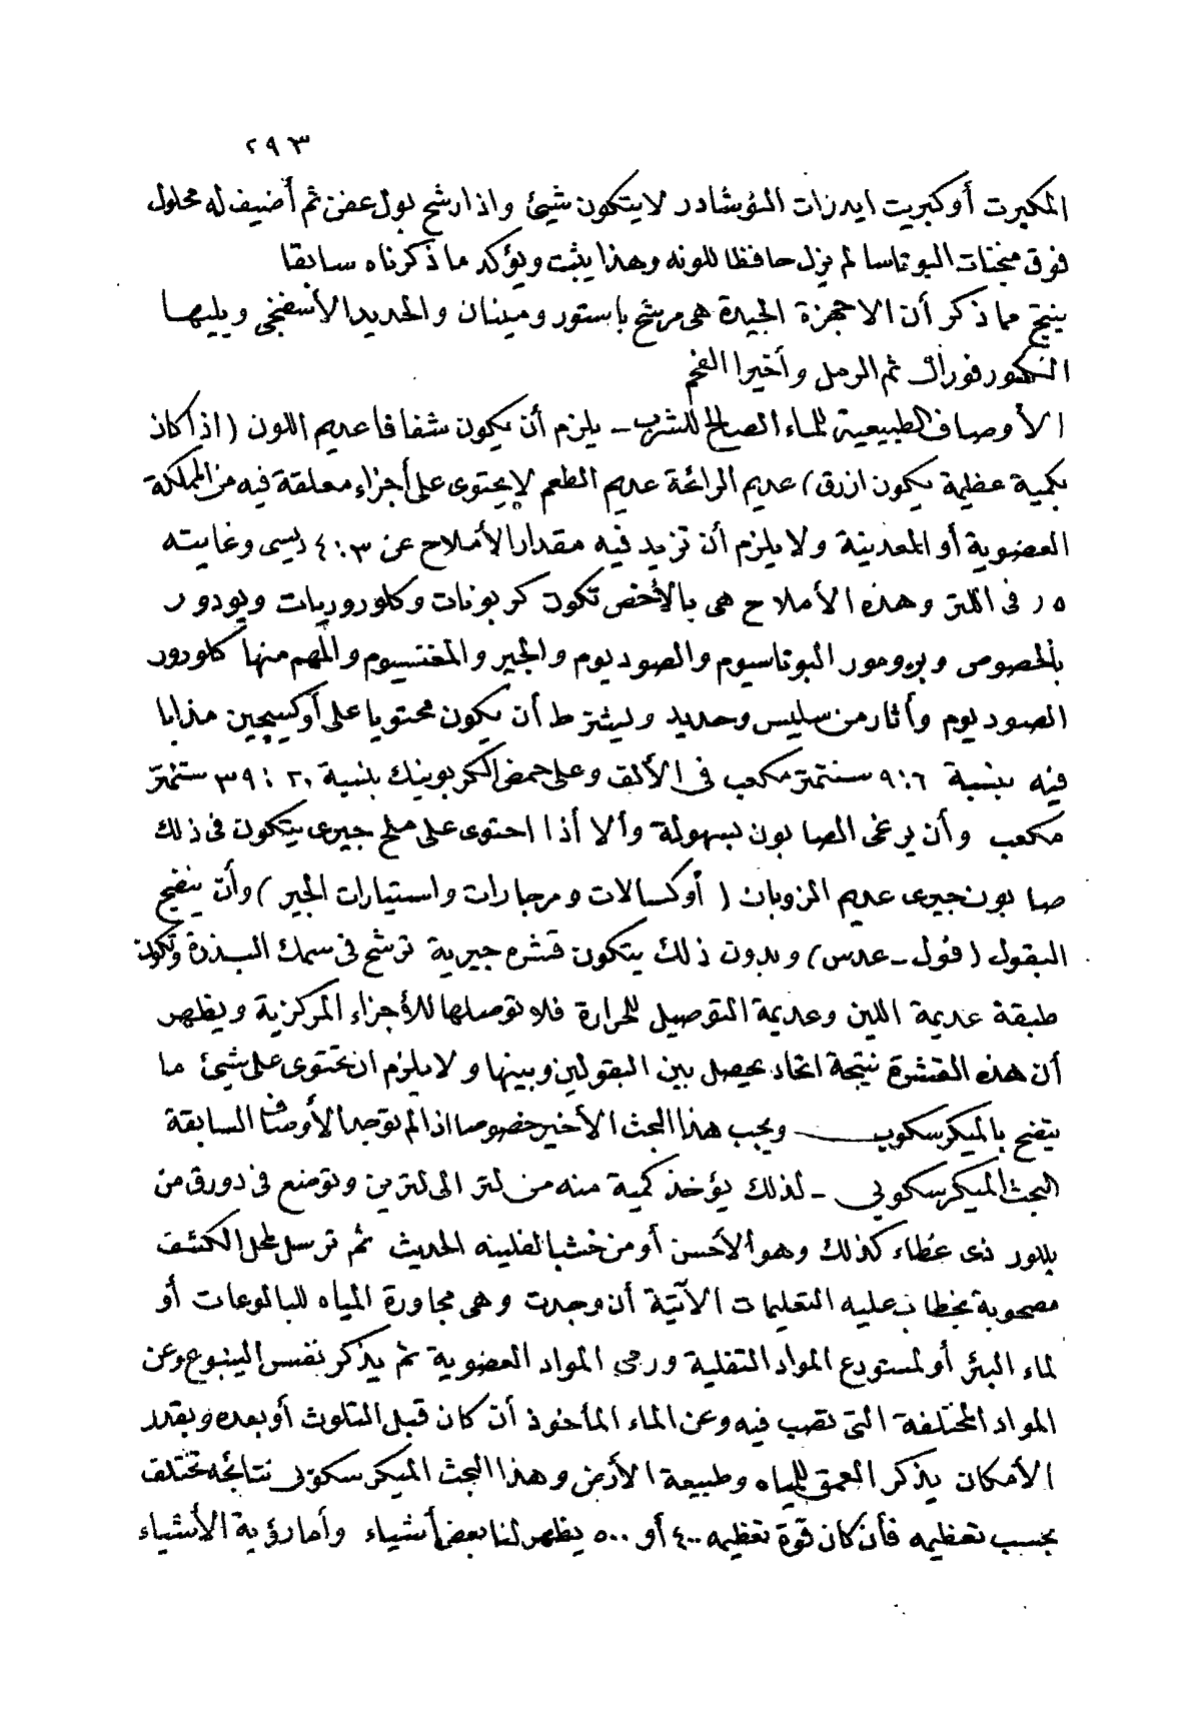 ٢٩٣
المكبرت أو كبريت ايدرات النوشادر لايتكون شيئ واذا رشح بول عفن ثم أضيف له محلول
فوق منجنات البوتاسا لم يزل حافظا للونه وهذا يثبت ويؤكد ما ذكرناه سابقا
ينتج مما ذكر أن الاجهزة الجيدة هى مرشح باستور ومينان والحديد الأسفنجى ويليها
ثم الرمل وأخيرا الفحم
الأوصاف الطبيعية للماء الصالح للشرب ــ يلزم أن يكون شفافا عديم اللون (اذا كان
بكمية عظيمة يكون ازرق) عديم الرائحة عديم الطعم لايحتوى على أجزاء معلقة فيه من المملكة
العضوية أو المعدنية ولا يلزم أن تزيد فيه مقدار الأملاح عن ٤:٣ ديسى وغايته
٥ر فى اللتر وهذه الأملاح هى بالأخص تكون كربونات وكلوروريات ويودور
بالخصوص وبرومور البوتاسيوم والصوديوم والجير والمغنسيوم والمهم منها كلورور
الصوديوم وأثار من سليس وحديد ويشترط أن يكون محتويا على أوكسيچين مذابا
فيه بنسبة ٩:٦ سنتمتر مكعب فى الألف وعلى حمض الكربونيك بنسبة ٢٠ : ٣٩ سنتمتر
مكعب وأن يرغى الصابون بسهولة وألا أذا احتوى على ملح جيرى يتكون فى ذلك
صابون جيرى عديم الزوبان (أوكسالات ومرجارات واستيارات الجير) وأن ينضج
البقول (فول ــ عدس) وبدون ذلك يتكون قشره جيرية ترشح فى سمك البذرة وتكون
طبقة عديمة اللين وعديمة التوصيل للحرارة فلا توصلها للأجزاء المركزية ويظهر
أن هذه القشرة نتيجة اتحاد يحصل بين البقولين وبينها ولا يلزم ان تحتوى على شيئ ما
يتضح بالميكرسكوب ــ ويجب هذا البحث الأخير خصوصا اذا لم توجد الأوصاف السابقة
البحث الميكرسكوبى ــ لذلك يؤخذ كمية منه من لتر الى لترين وتوضع فى دورق من
بللور ذى غطاء كذلك وهو الأحسن أو من خشب الفلينه الحديث ثم ترسل لمحل الكشف
مصحوبة بخطاب عليه التعليمات الآتية أن وجدت وهى مجاورة المياه للبالوعات أو
لماء البئر أو لمستودع المواد الثفلية ورمى المواد العضوية ثم يذكر نفس الينبوع وعن
المواد المختلفة التى تصب فيه وعن الماء المأخوذ أن كان قبل التلوث أو بعده وبقدر
الأمكان يذكر العمق للمياه وطبيعة الأرض وهذا البحث الميكرسكوبى نتائجه تختلف
بحسب تعظيمه فأن كان قوة تعظيمه ٤٠٠ أو ٥٠٠ يظهر لنا بعض أشياء وأما رؤية الأشياء